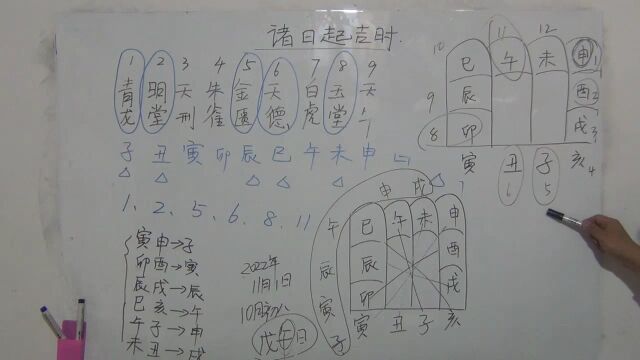 诸日起吉时.
1 2 3 4 5 6 7 8 9
青龙 明堂 天刑 朱雀 金匮 天德 白虎 玉堂 天
子 丑 寅 卯 辰 巳 午 未 申
1、2、5、6、8、11
寅申→子
卯酉→寅
辰戌→辰
巳亥→午
午子→申
未丑→戌
2022年
11月1日
10月初八
戊午日
10 11 12
巳 午 未 申 1
9 辰 酉 2
8 卯 戌 3
寅 丑 子 亥 4
6 5
申 戌
午 巳 午 未 申
辰 辰 酉
寅 卯 戌
子 寅 丑 子 亥